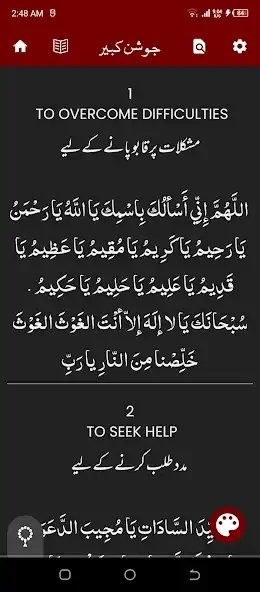 2:48 AM
84
جوشن کبیر
1
TO OVERCOME DIFFICULTIES
مشکلات پر قابو پانے کے لیے
اللَّهُمَّ إِنِّي أَسْأَلُكَ بِاسْمِكَ يَا اللَّهُ يَا رَحْمَنُ
يَا رَحِيمُ يَا كَرِيمُ يَا مُقِيمُ يَا عَظِيمُ يَا
قَدِيمُ يَا عَلِيمُ يَا حَلِيمُ يَا حَكِيمُ .
سُبْحَانَكَ يَا لا إِلَهَ إِلاّ أَنْتَ الغَوْثَ الغَوْثَ
خَلِّصْنا مِنَ النَّارِ يا رَبِّ
2
TO SEEK HELP
مدد طلب کرنے کے لیے
السَّادَاتِ يَا مُجِيبَ